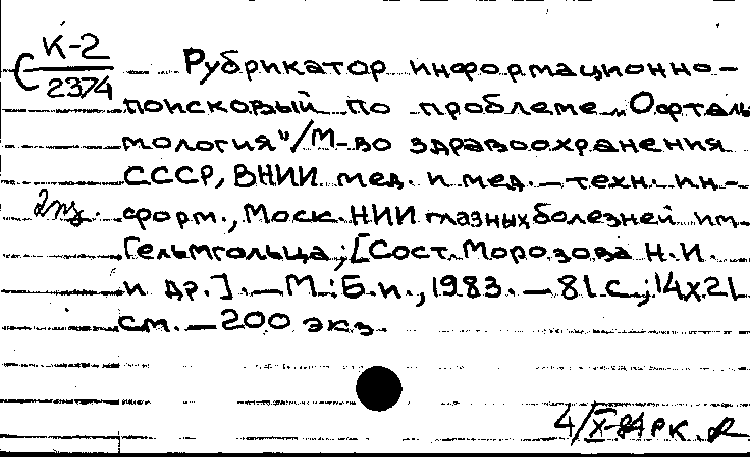 С К-2
2374
Рубрикатор информационно-
поисковый по проблеме „Офталь
мология"/М-во здравоохранения
СССР, ВНИИ мед. и мед.-техн. ин-
2 пз.
форм., Моск. НИИ глазных болезней им.
Гельмгольца; [Сост. Морозова Н.И.
и др.]. — М.: Б.и., 1983. — 81 с.; 14х21
см. — 200 экз.
4/X-84 РК.